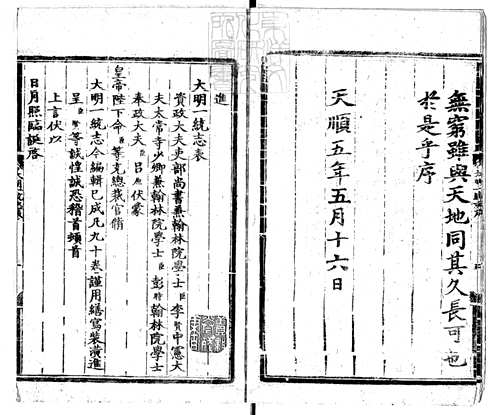 無窮雖與天地同其久長可也
於是乎序
天順五年五月十六日
進
大明一統志表
資政大夫吏部尚書兼翰林院學士臣李賢中憲大
夫太常寺少卿兼翰林院學士臣彭時翰林院學士
奉政大夫臣呂原伏蒙
皇帝陛下命臣等充總裁官脩
大明一統志今編輯已成凡九十卷謹用繕寫裝潢進
呈臣等誠惶誠恐稽首頓首
上言伏以
日月照臨誕啓